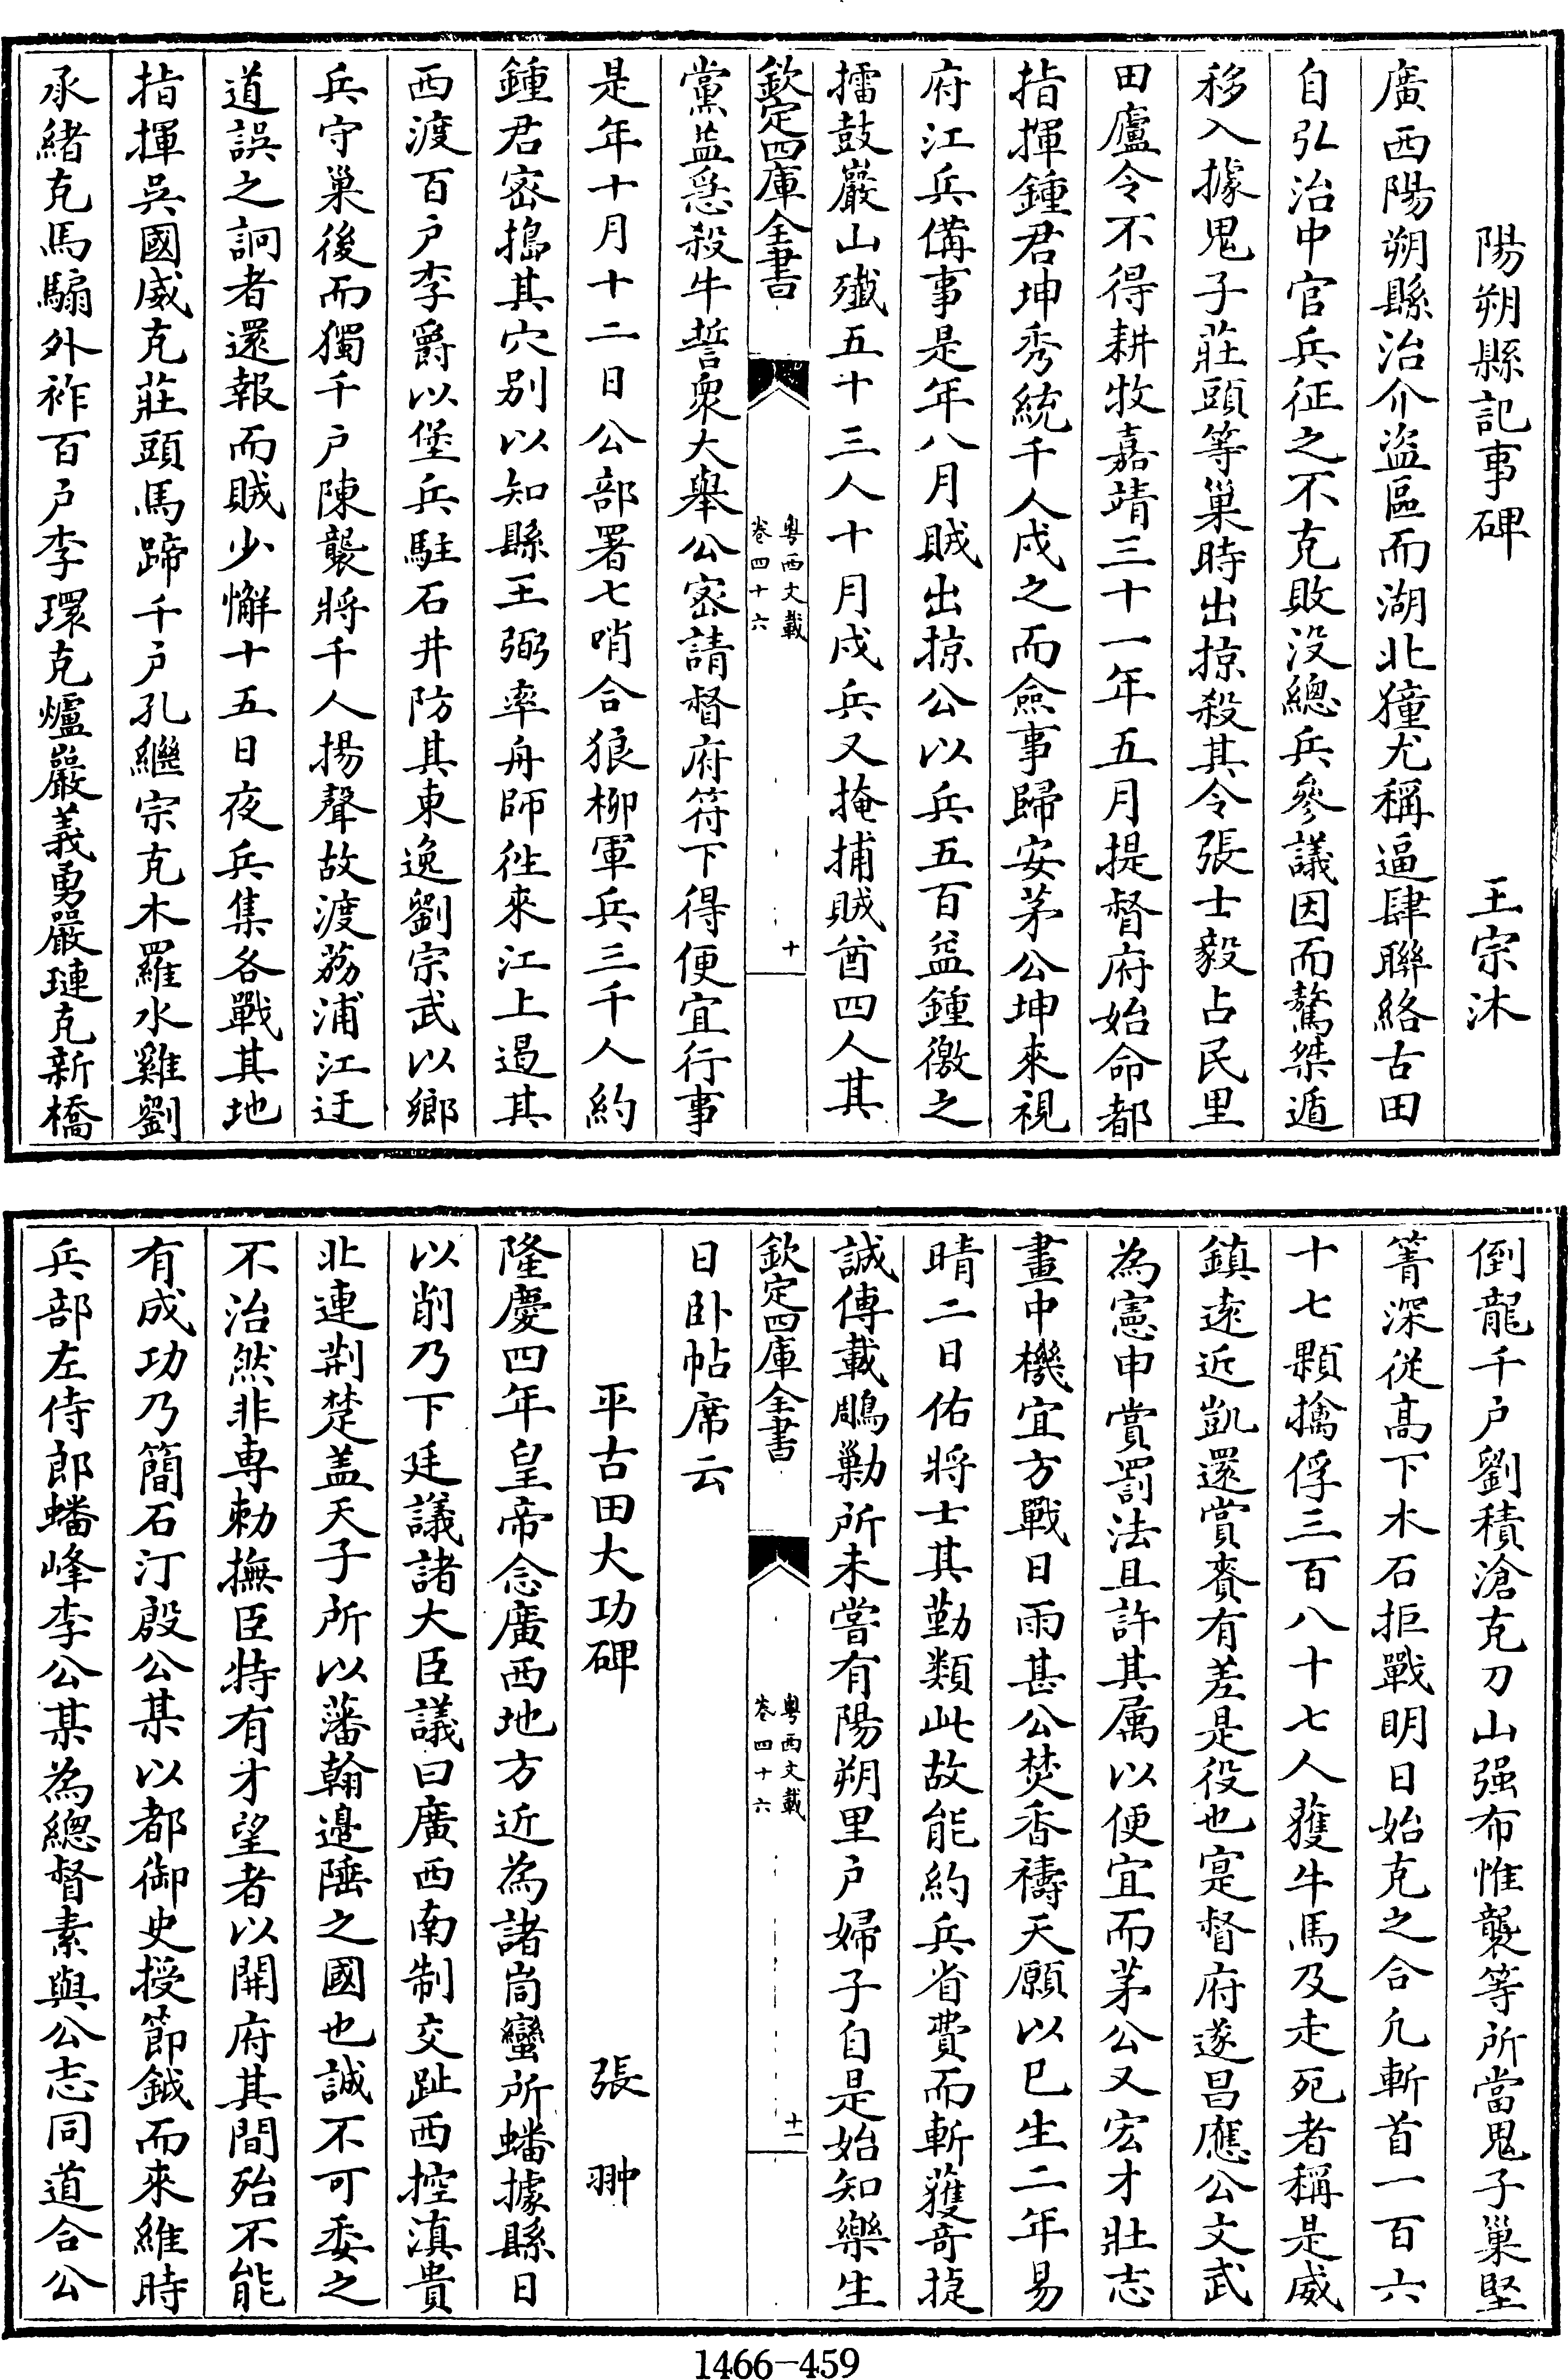 陽朔縣記事碑　王宗沐
廣西陽朔縣治介盜區而湖北獞尤稱逼肆聯絡古田
自弘治中官兵征之不克敗没總兵參議因而驁桀遁
移入據鬼子莊頭等巢時出掠殺其令張士毅占民里
田廬令不得耕牧嘉靖三十一年五月提督府始命都
指揮鍾君坤秀統千人戍之而僉事歸安茅公坤來視
府江兵備事是年八月賊出掠公以兵五百益鍾徼之
擂鼓巖山殱五十三人十月戍兵又掩捕賊酋四人其
欽定四庫全書　粤西文載　卷四十六　十
黨益急殺牛誓衆大舉公密請督府符下得便宜行事
是年十月十二日公部署七哨合狼柳軍兵三千人約
鍾君密搗其穴别以知縣王弼率舟師徃來江上遏其
西渡百户李爵以堡兵駐石井防其東逸劉宗武以鄉
兵守巢後而獨千户陳襲將千人揚聲故渡荔浦江迂
道誤之詗者還報而賊少懈十五日夜兵集各戰其地
指揮吳國威克莊頭馬蹄千户孔繼宗克木羅水雞劉
承緒克馬騸外袏百户李環克爐巖義勇嚴璉克新橋
倒龍千户劉積滄克刀山强布惟襲等所當鬼子巢堅
箐深從髙下木石拒戰明日始克之合凡斬首一百六
十七顆擒俘三百八十七人獲牛馬及走死者稱是威
鎮逺近凱還賞賚有差是役也寔督府遂昌應公文武
為憲申賞罰法且許其属以便宜而茅公又宏才壯志
畫中機宜方戰日雨甚公焚香禱天願以巳生二年易
晴二日佑將士其勤類此故能約兵省費而斬獲奇捷
誠傳載鵰勦所未嘗有陽朔里户婦子自是始知樂生
欽定四庫全書　粤西文載　卷四十六　十一
日卧帖席云
平古田大功碑　張翀
隆慶四年皇帝念廣西地方近為諸峝蠻所蟠據縣日
以削乃下廷議諸大臣議曰廣西南制交趾西控滇貴
北連荆楚盖天子所以藩翰邉陲之國也誠不可委之
不治然非専勅撫臣特有才望者以開府其間殆不能
有成功乃簡石汀殷公某以都御史授節鉞而來維時
兵部左侍郎蟠峰李公某為總督素與公志同道合公
1466-459